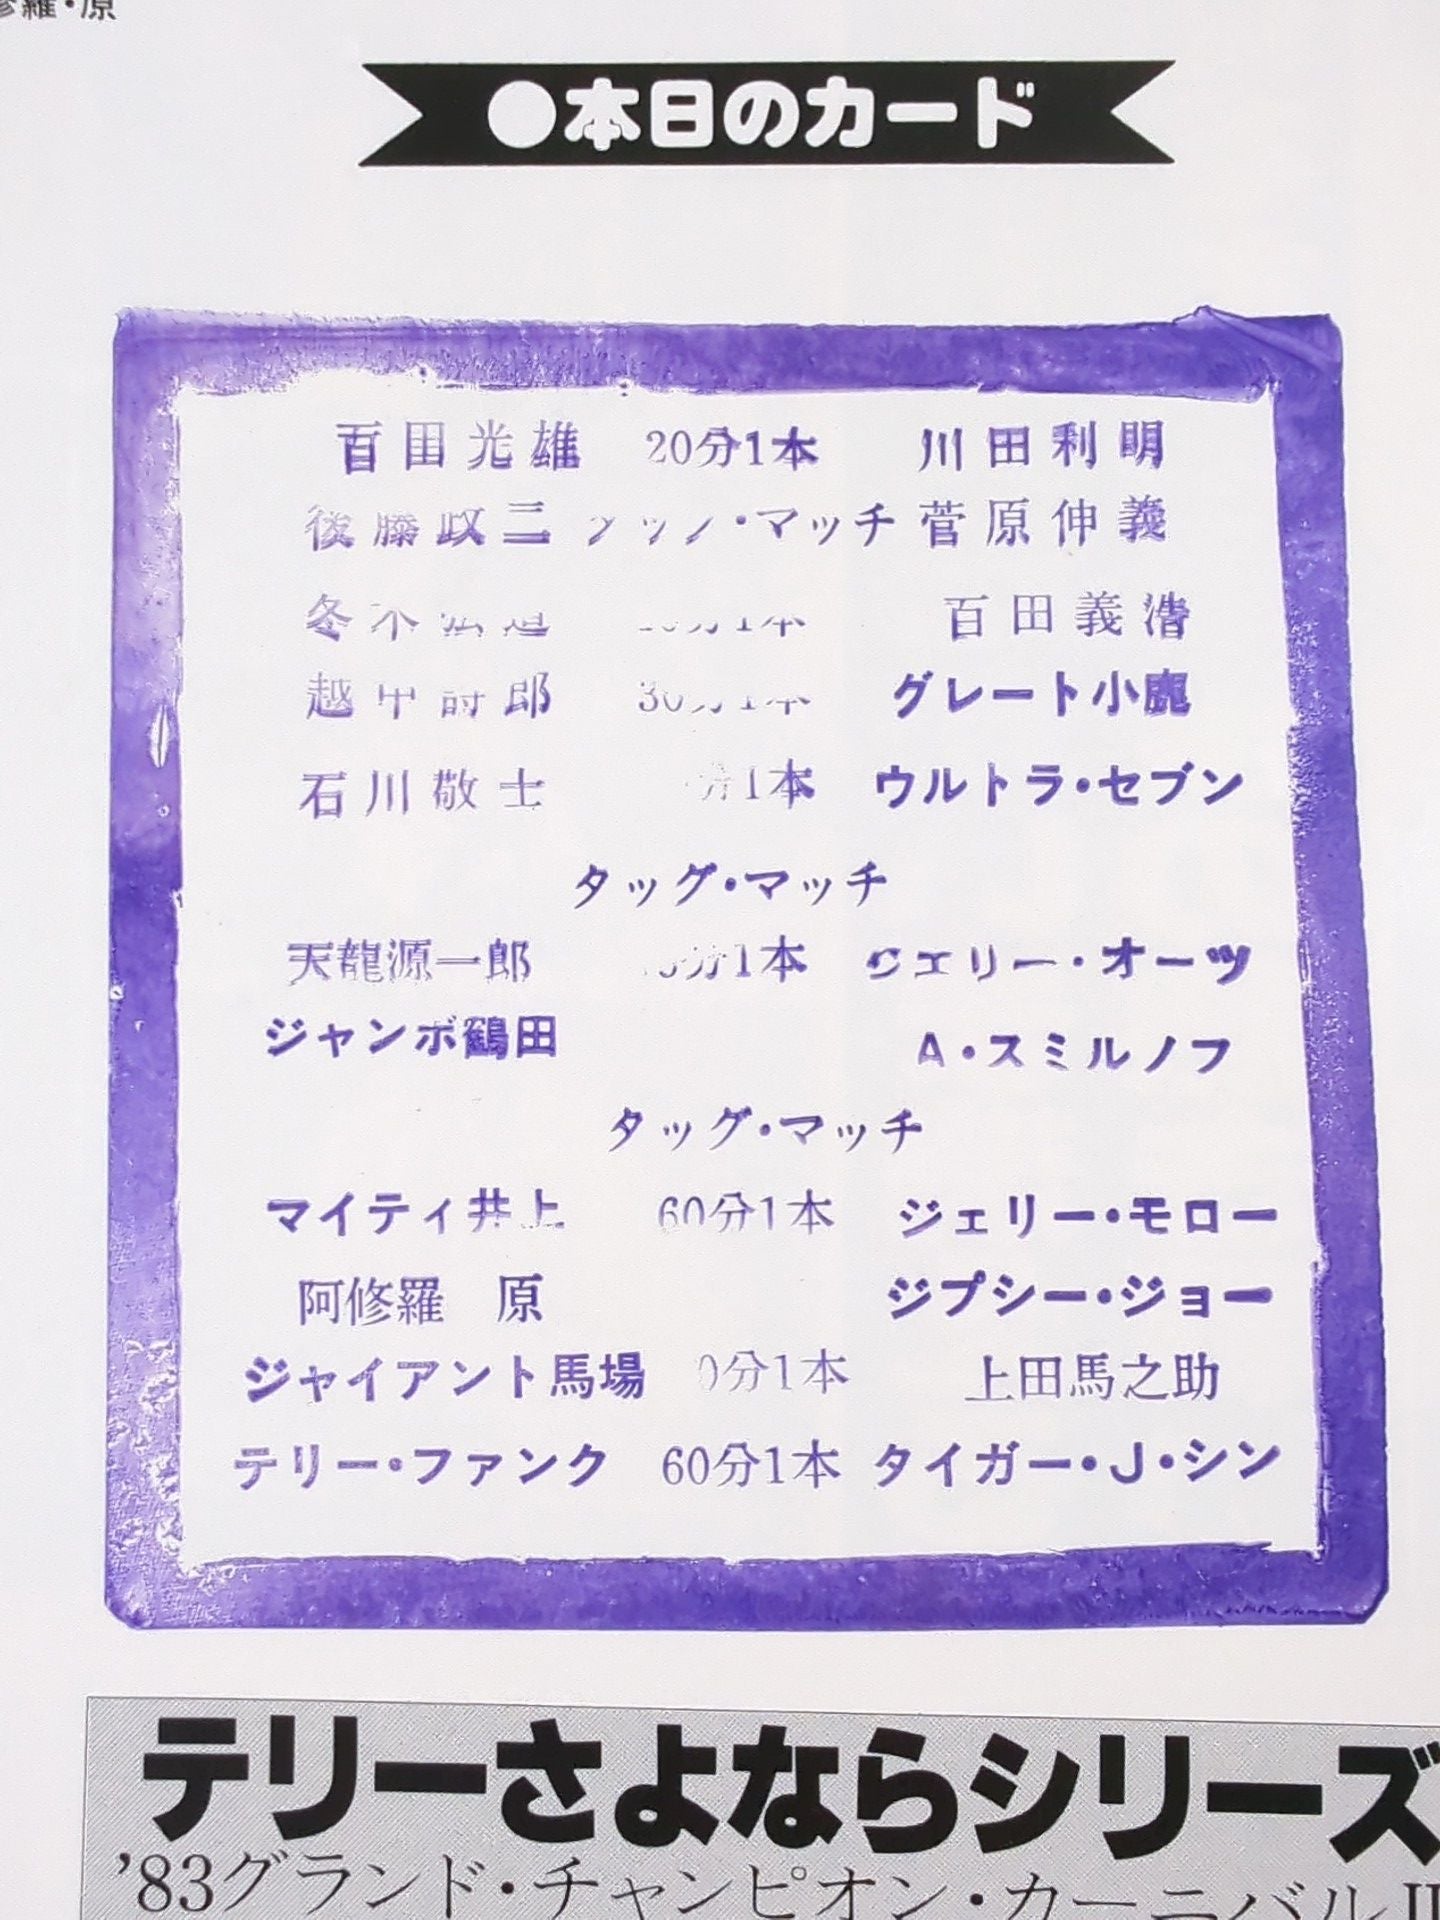 修羅・原
●本日のカード
百田光雄 20分1本 川田利明
後藤政二 タッグ・マッチ 菅原伸義
冬木弘道 百田義浩
越中詩郎 30分1本 グレート小鹿
石川敬士 分1本 ウルトラ・セブン
タッグ・マッチ
天龍源一郎 分1本 ジェリー・オーツ
ジャンボ鶴田 A・スミルノフ
タッグ・マッチ
マイティ井上 60分1本 ジェリー・モロー
阿修羅 原 ジプシー・ジョー
ジャイアント馬場 0分1本 上田馬之助
テリー・ファンク 60分1本 タイガー・J・シン
テリーさよならシリーズ
'83グランド・チャンピオン・カーニバルII